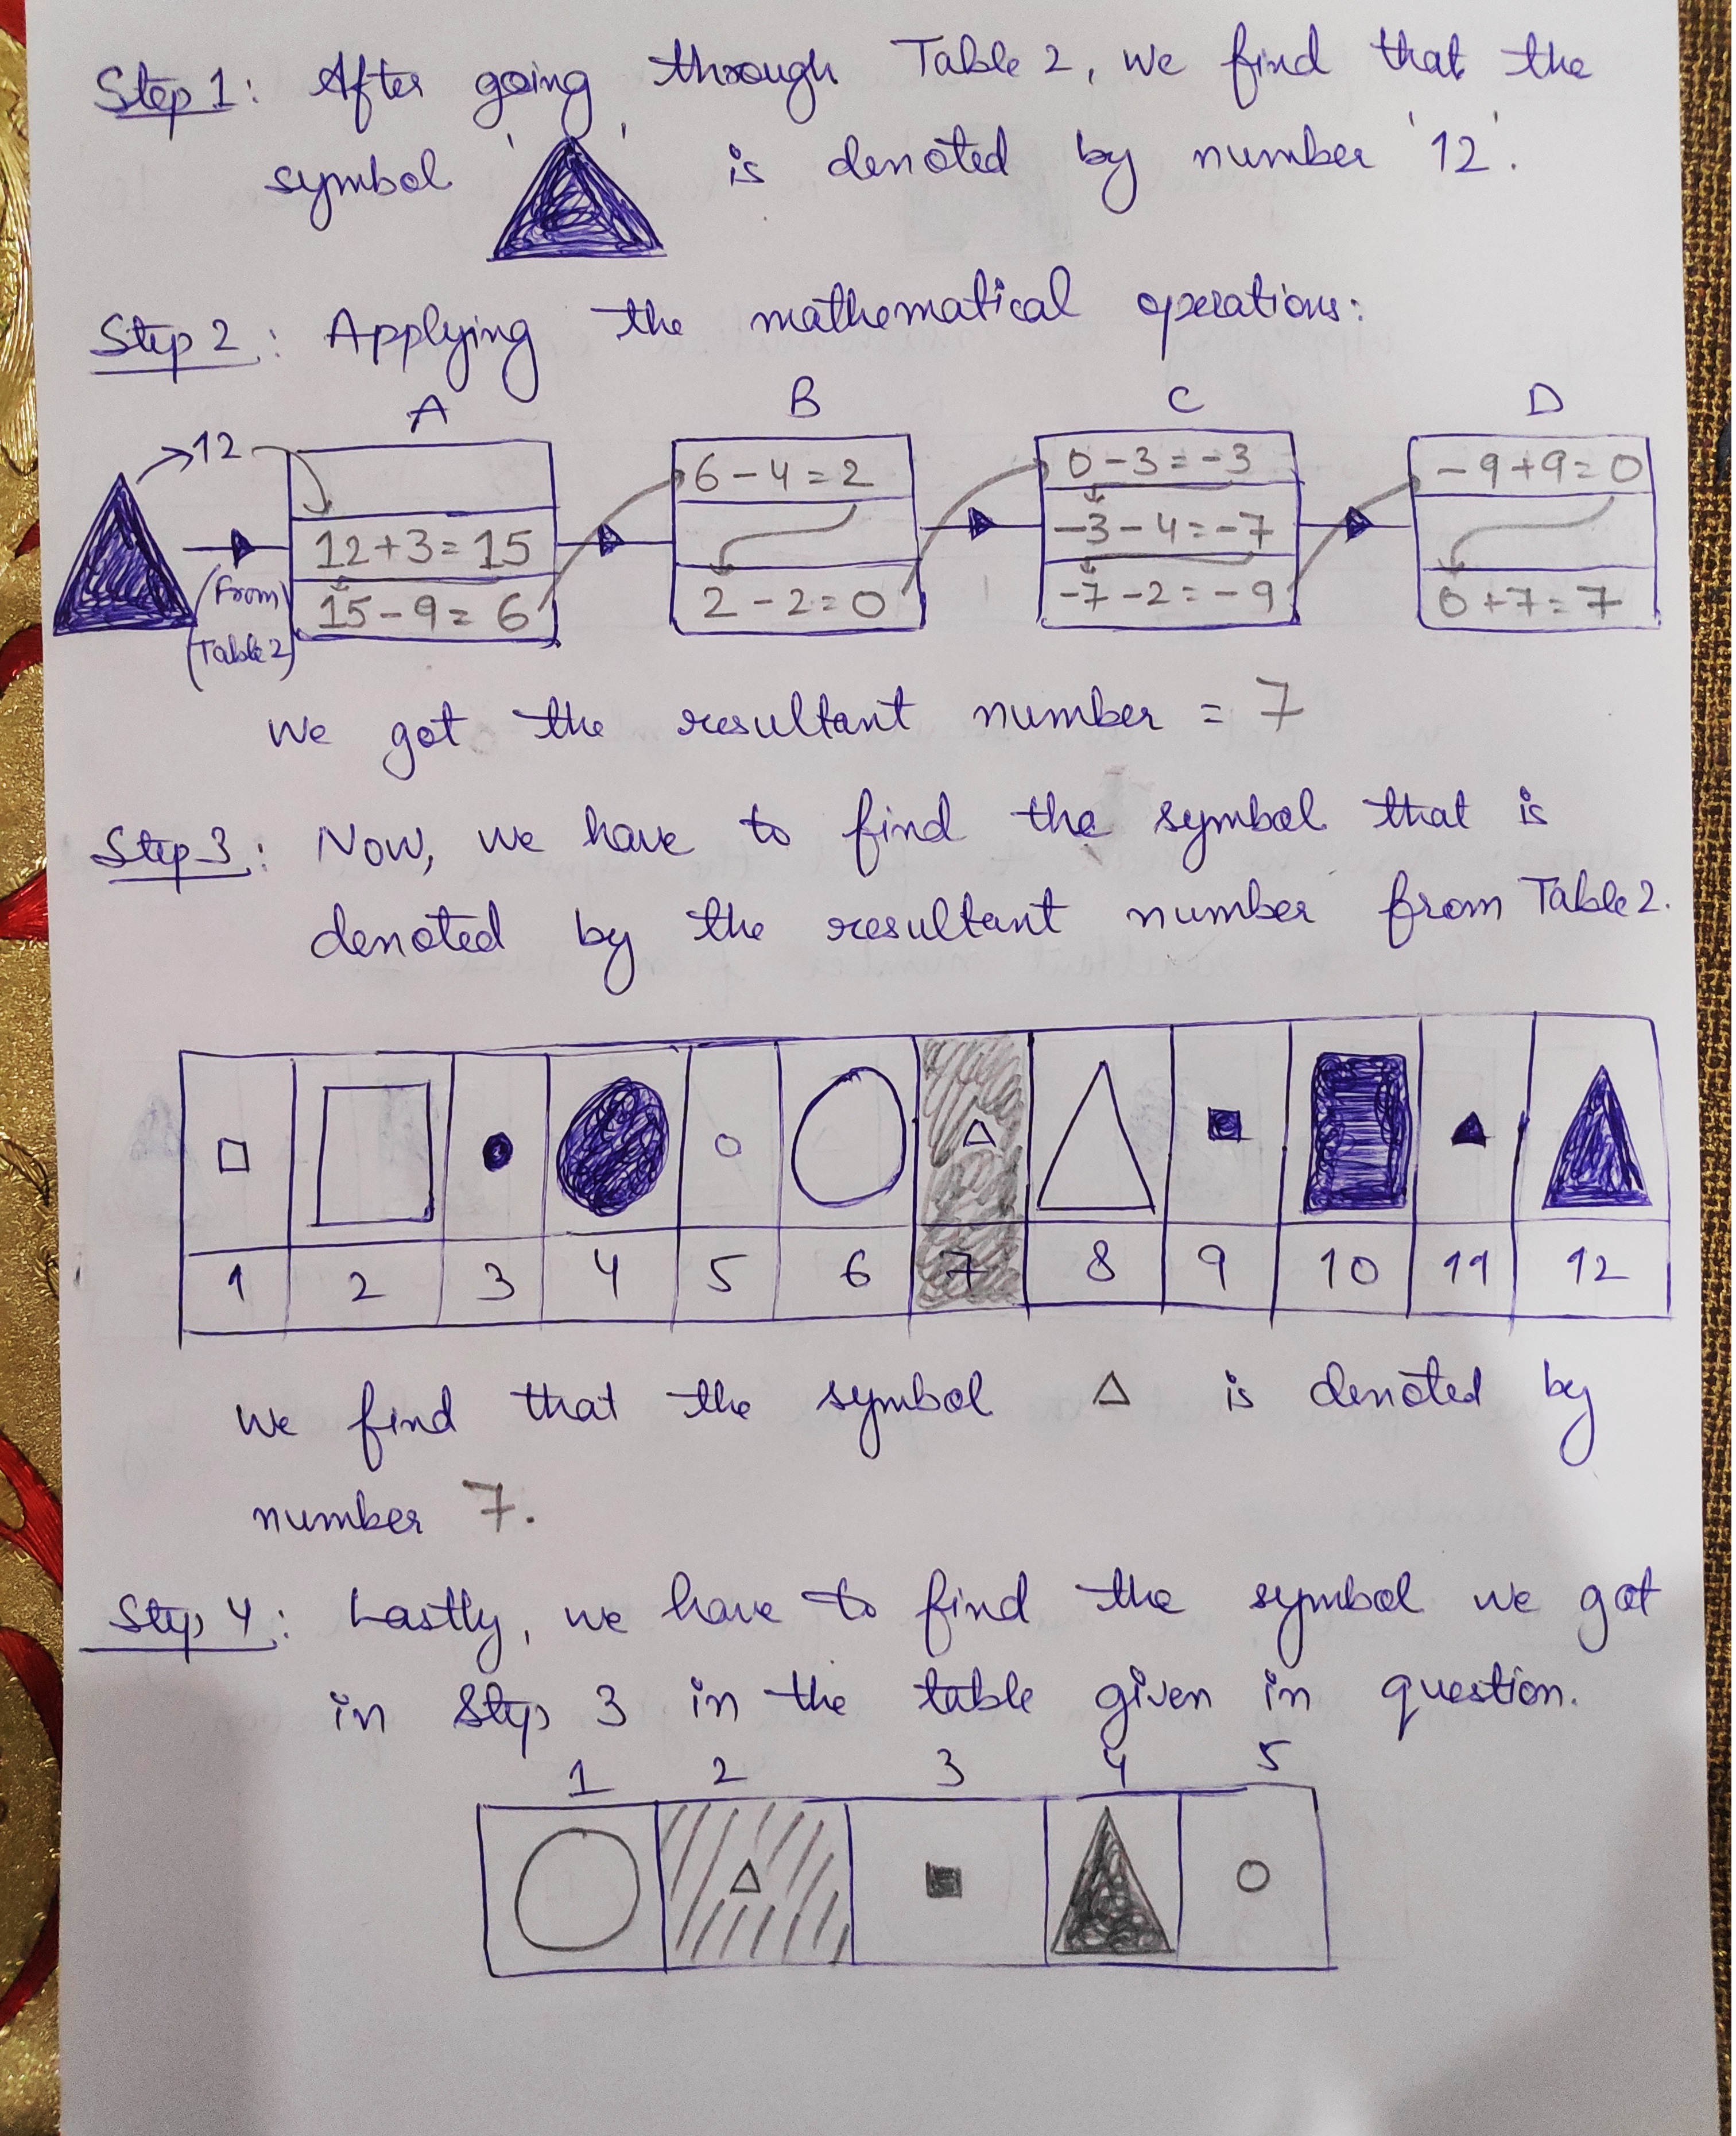 Step 1: After going through Table 2, we find that the
symbol ' ' is denoted by number '12'.
Step 2: Applying the mathematical operations:
A B C D
12
12+3=15
15-9=6
(From
Table 2)
6-4=2
2-2=0
0-3=-3
-3-4=-7
-7-2=-9
-9+9=0
0+7=7
we got the resultant number = 7
Step 3: Now, we have to find the symbol that is
denoted by the resultant number from Table 2.
1 2 3 4 5 6 7 8 9 10 11 12
we find that the symbol △ is denoted by
number 7.
Step 4: Lastly, we have to find the symbol we got
in Step 3 in the table given in question.
1 2 3 4 5